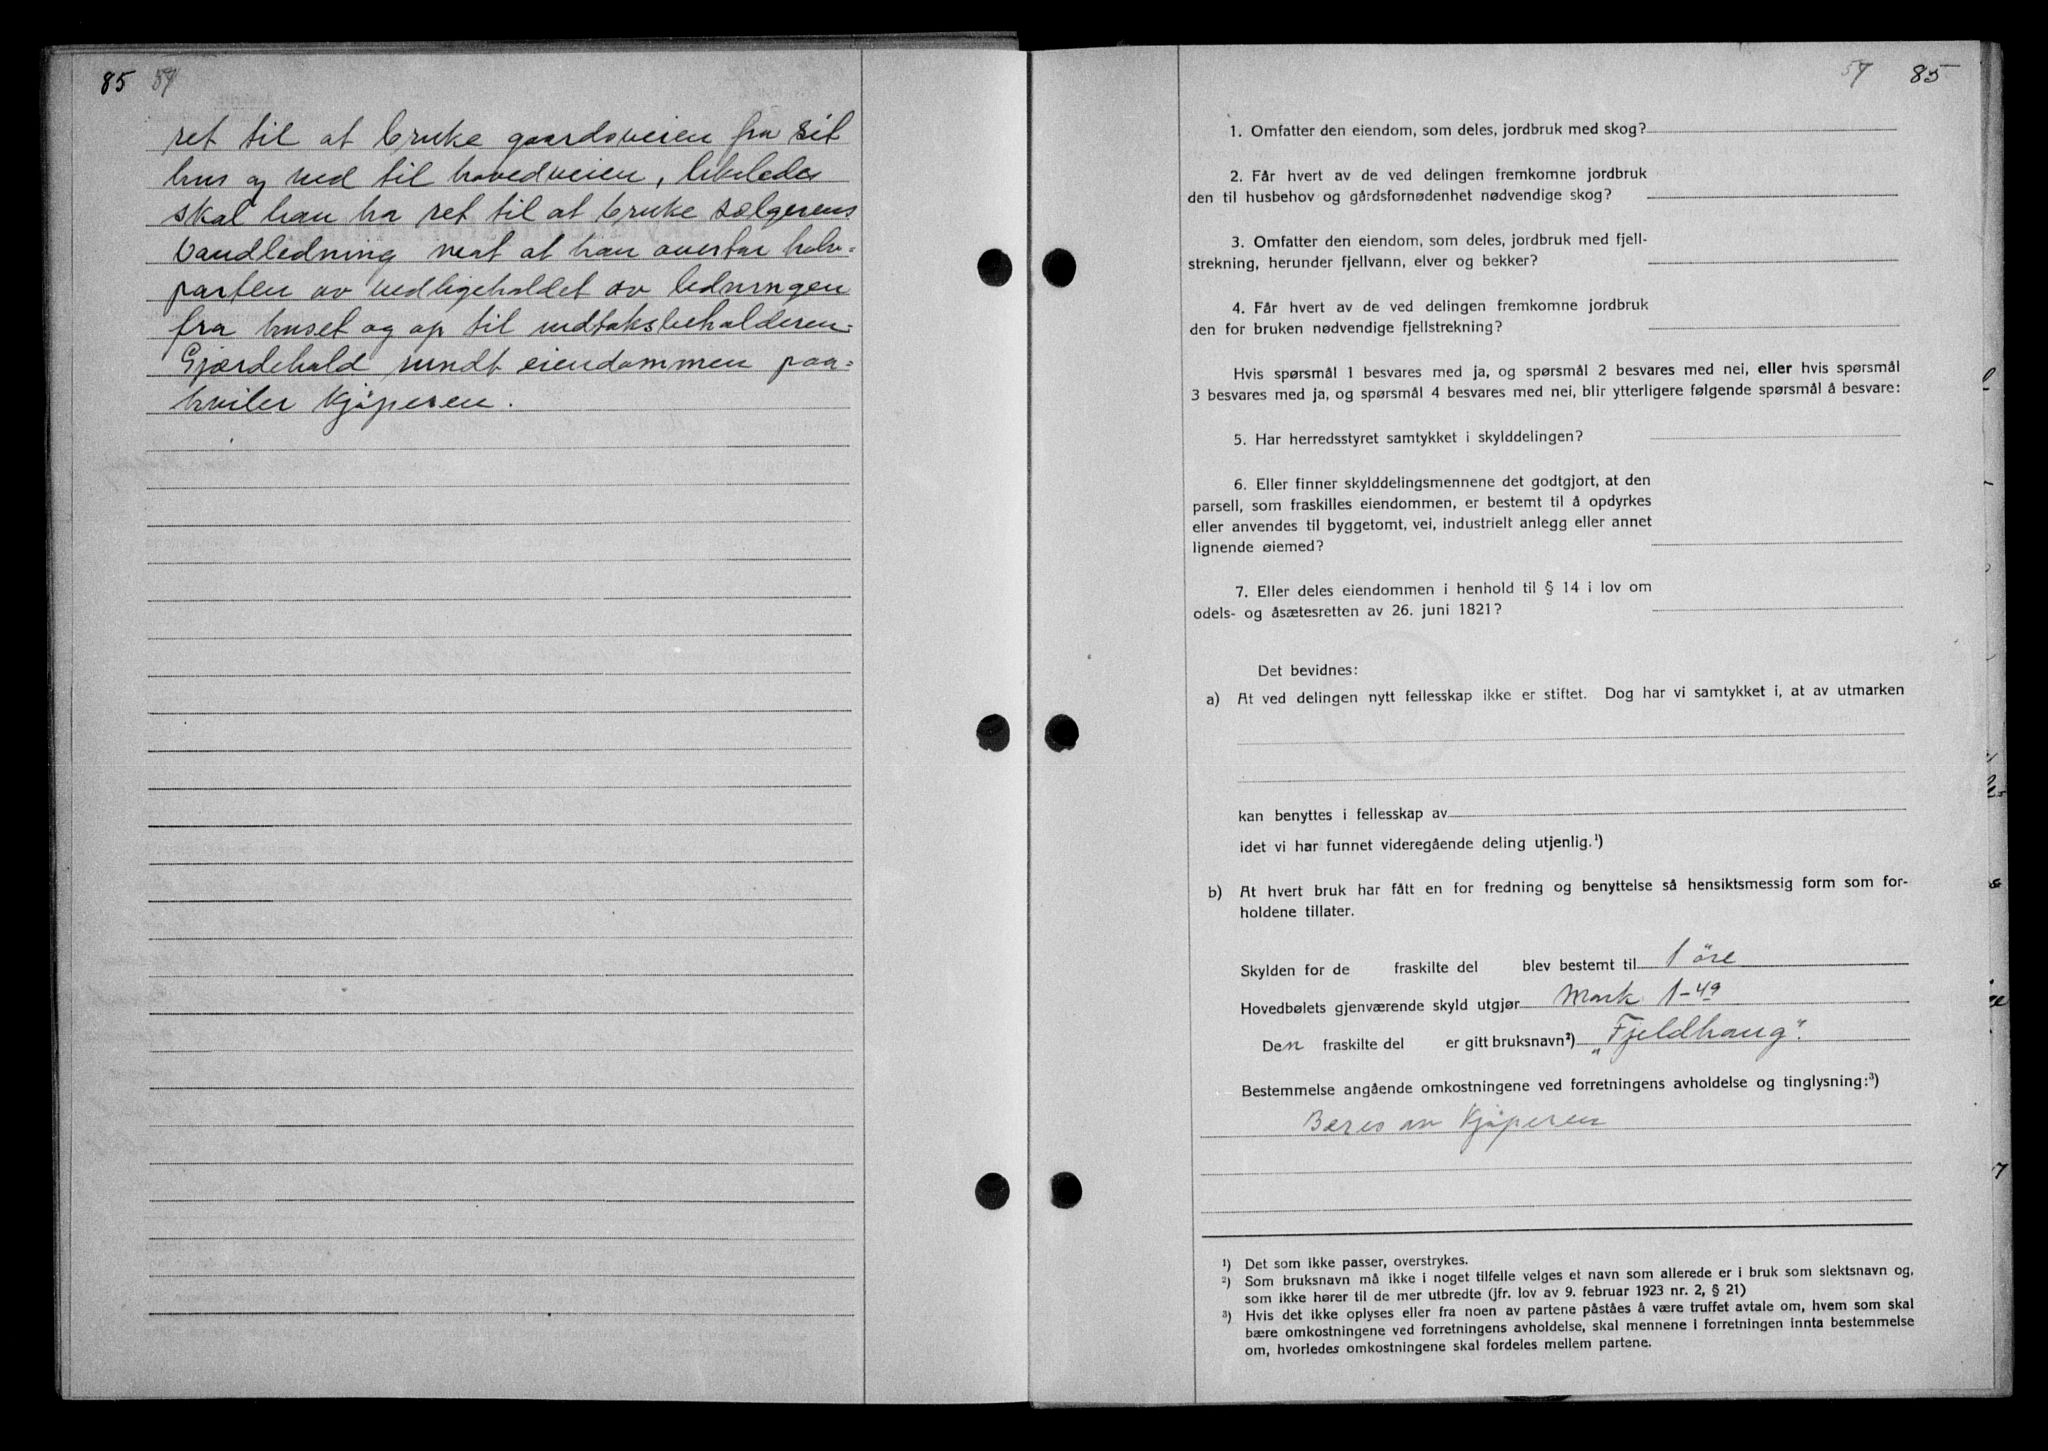 85 57
ret til at bruke gaardsveien fra sit
hus og ned til hovedveien, likeledes
skal han ha ret til at bruke sælgerens
Vandledning mot at han overtar halv-
parten av vedligeholdet av ledningen
fra huset og op til indtaksbeholderen.
Gjærdehold rundt eiendommen paa-
hviler Kjøperen.
57 85
1. Omfatter den eiendom, som deles, jordbruk med skog?
2. Får hvert av de ved delingen fremkomne jordbruk
den til husbehov og gårdsfornødenhet nødvendige skog?
3. Omfatter den eiendom, som deles, jordbruk med fjell-
strekning, herunder fjellvann, elver og bekker?
4. Får hvert av de ved delingen fremkomne jordbruk
den for bruken nødvendige fjellstrekning?
Hvis spørsmål 1 besvares med ja, og spørsmål 2 besvares med nei, eller hvis spørsmål
3 besvares med ja, og spørsmål 4 besvares med nei, blir ytterligere følgende spørsmål å besvare:
5. Har herredsstyret samtykket i skylddelingen?
6. Eller finner skylddelingsmennene det godtgjort, at den
parsell, som fraskilles eiendommen, er bestemt til å opdyrkes
eller anvendes til byggetomt, vei, industrielt anlegg eller annet
lignende øiemed?
7. Eller deles eiendommen i henhold til § 14 i lov om
odels- og åsætesretten av 26. juni 1821?
Det bevidnes:
a) At ved delingen nytt fellesskap ikke er stiftet. Dog har vi samtykket i, at av utmarken
kan benyttes i fellesskap av
idet vi har funnet videregående deling utjenlig.¹)
b) At hvert bruk har fått en for fredning og benyttelse så hensiktsmessig form som for-
holdene tillater.
Skylden for de fraskilte del blev bestemt til 1 öre
Hovedbølets gjenværende skyld utgjør Mark 1-49
Den fraskilte del er gitt bruksnavn²) „Fjeldhaug“.
Bestemmelse angående omkostningene ved forretningens avholdelse og tinglysning:³)
Bæres av Kjøperen
¹) Det som ikke passer, overstrykes.
²) Som bruksnavn må ikke i noget tilfelle velges et navn som allerede er i bruk som slektsnavn og,
som ikke hører til de mer utbredte (jfr. lov av 9. februar 1923 nr. 2, § 21)
³) Hvis det ikke oplyses eller fra noen av partene påståes å være truffet avtale om, hvem som skal
bære omkostningene ved forretningens avholdelse, skal mennene i forretningen innta bestemmelse
om, hvorledes omkostningene skal fordeles mellem partene.